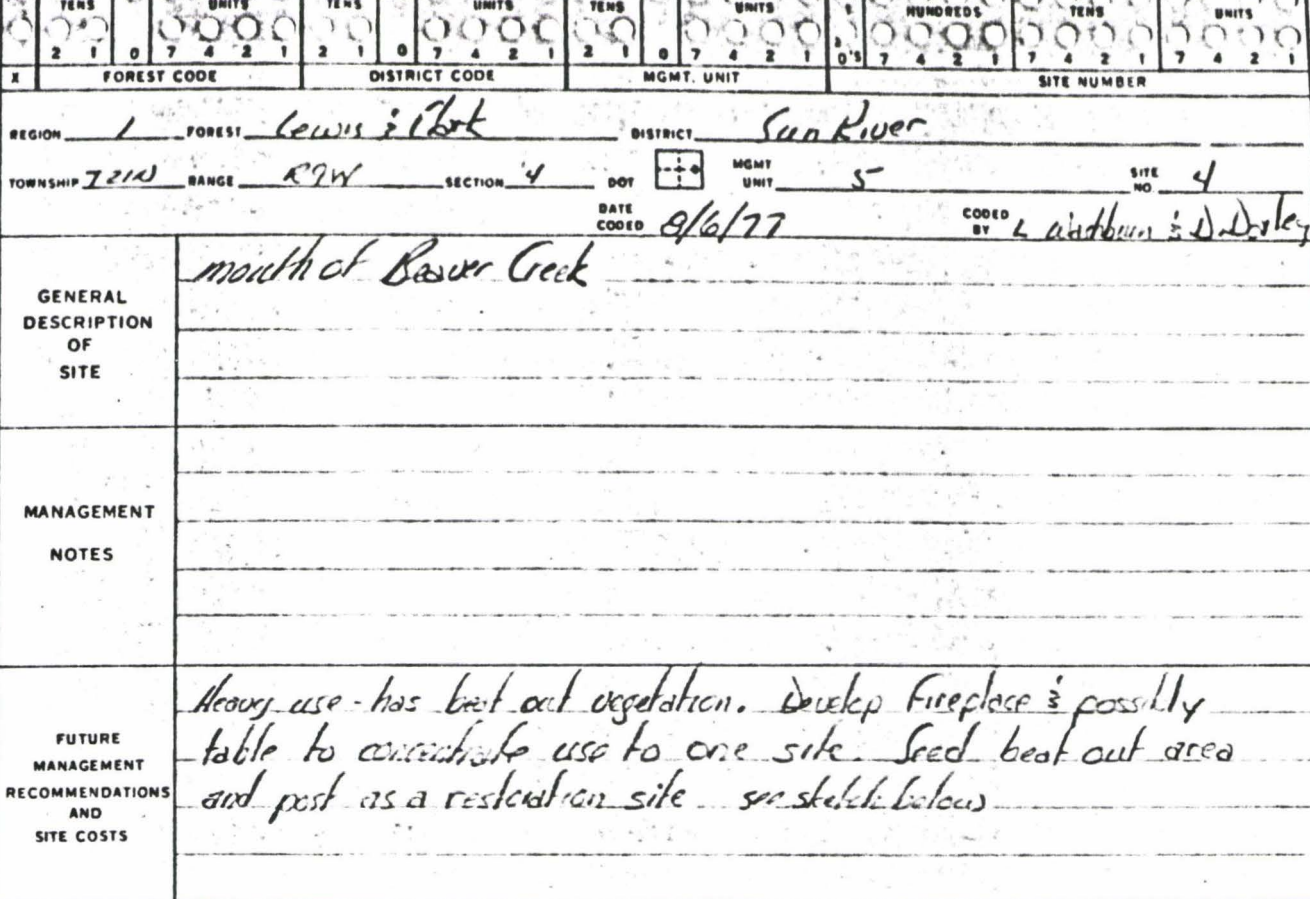 TENS UNITS TENS UNITS TENS UNITS HUNDREDS TENS UNITS
2 1 0 7 4 2 1 2 1 0 7 4 2 1 2 1 0 7 4 2 1 0'S 7 4 2 1 7 4 2 1 7 4 2 1
X FOREST CODE DISTRICT CODE MGMT. UNIT SITE NUMBER
REGION 1 FOREST Lewis & Clark DISTRICT Sun River
TOWNSHIP T21N RANGE R9W SECTION 4 DOT MGMT UNIT 5 SITE NO 4
DATE CODED 8/6/77 CODED BY L Washburn & D.
GENERAL DESCRIPTION OF SITE
mouth of Beaver Creek
MANAGEMENT
NOTES
FUTURE MANAGEMENT RECOMMENDATIONS AND SITE COSTS
Heavy use - has beat out vegetation. Develop Fireplace & possibly
table to concentrate use to one site. Seed beat out area
and post as a restoration site see sketch below